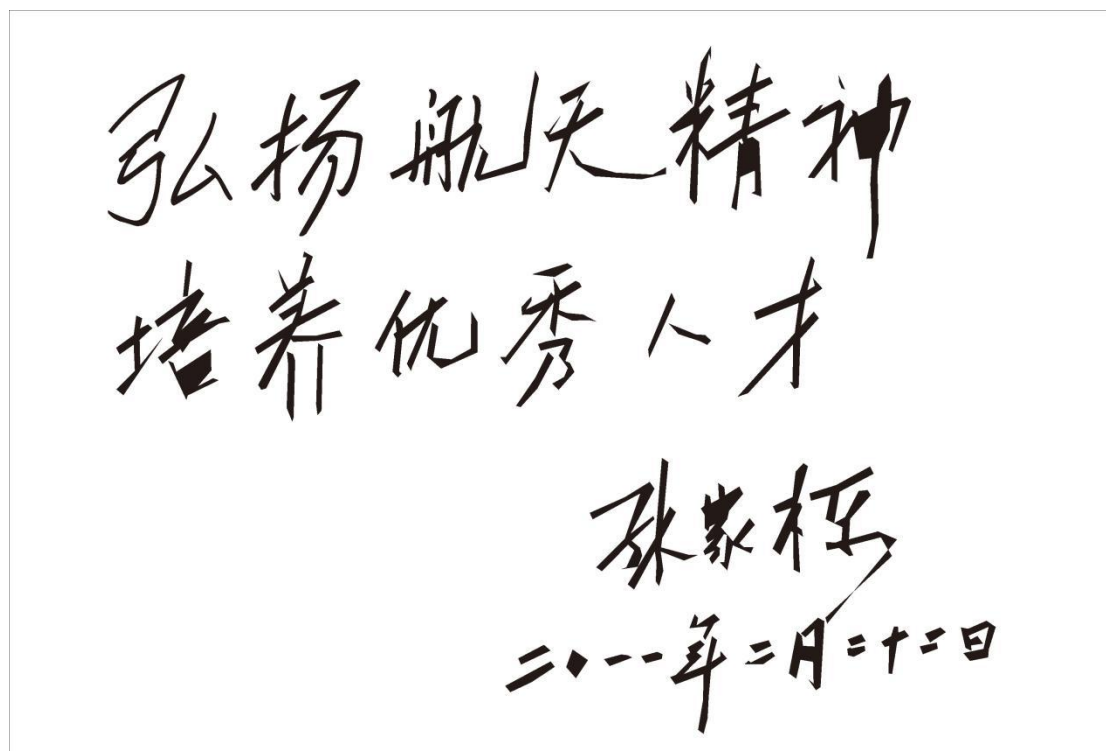 弘扬航天精神
培养优秀人才
孙家栋
二〇一一年二月二十二日